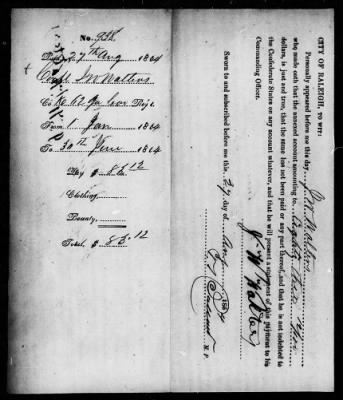 No. 938
27th Aug 1864
J W Walters
Co E 62 Ga Cav Regt.
From 1 Jan 1864
To 30th June 1864
Pay $ 83.12
Clothing,
Bounty,
Total, $ 83.12
CITY OF RALEIGH, TO WIT:
Personally appeared before me this day J W Walters
who made oath that the annexed account amounting to Eighty three 12/100
dollars, is just and true, that the same has not been paid or any part thereof, and that he is not indebted to
the Confederate States on any account whatever, and that he will present a statement of this payment to his
Commanding Officer.
J W Walters
Sworn to and subscribed before me this, 27 day of Aug 1864
N. P.